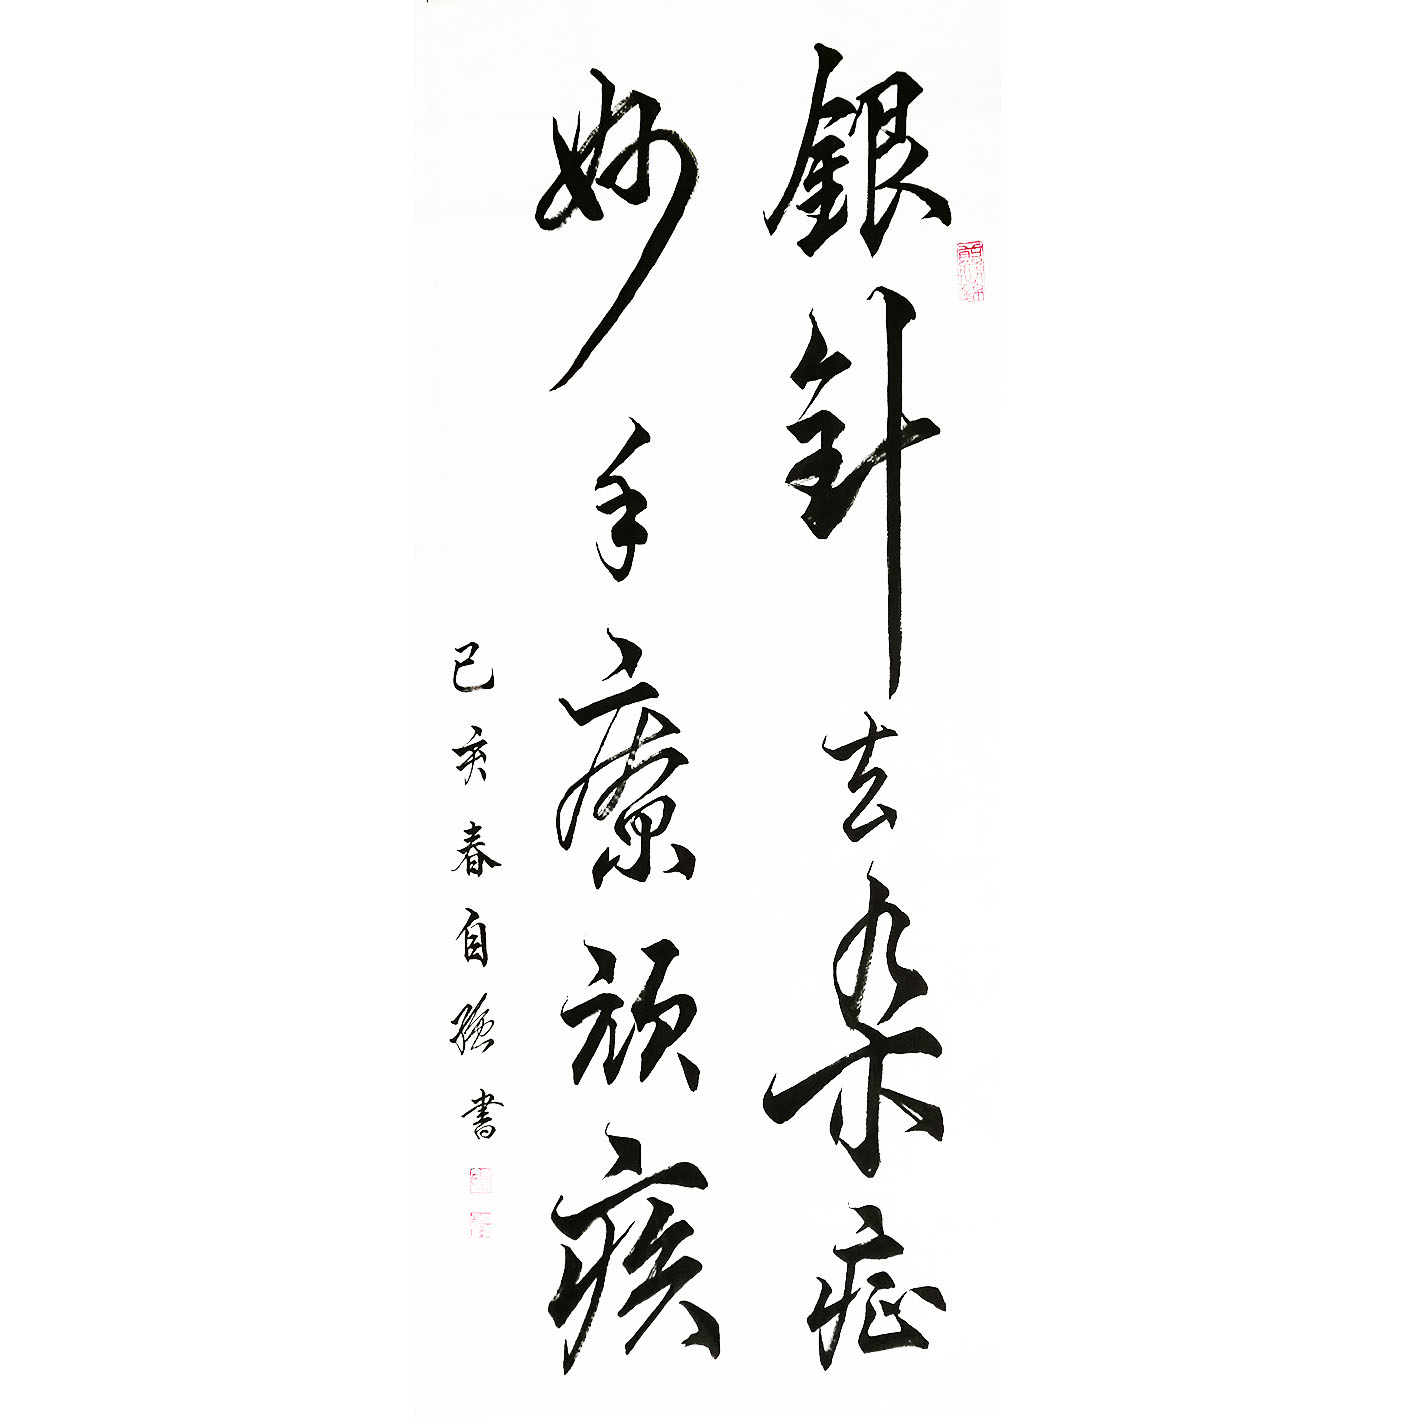 銀針去杂症
妙手療頑疾
己亥春自强書